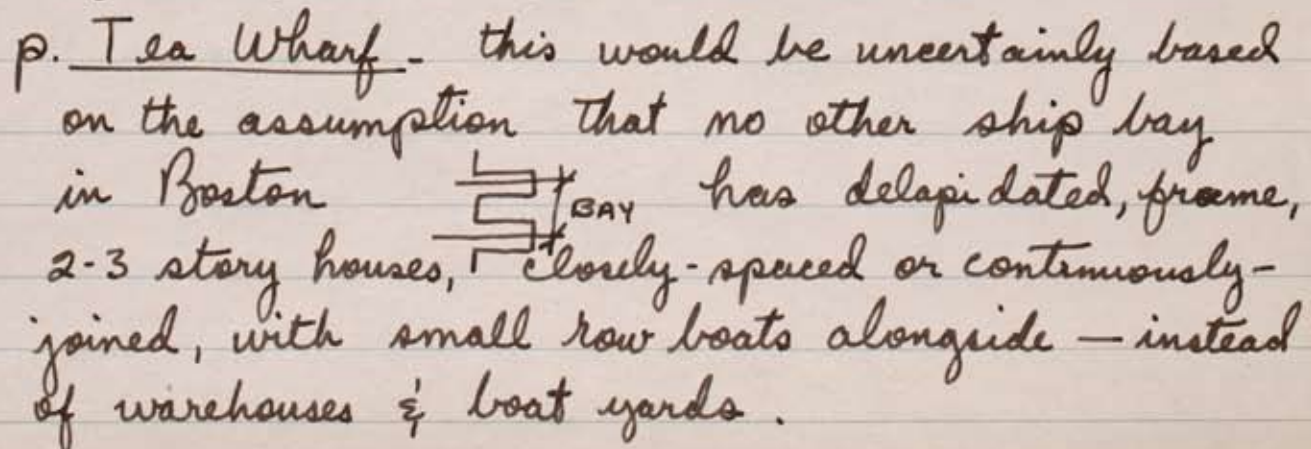 p. Tea Wharf - this would be uncertainly based
on the assumption that no other ship bay
in Boston BAY has delapidated, frame,
2-3 story houses, closely-spaced or continuously-
joined, with small row boats alongside — instead
of warehouses & boat yards.